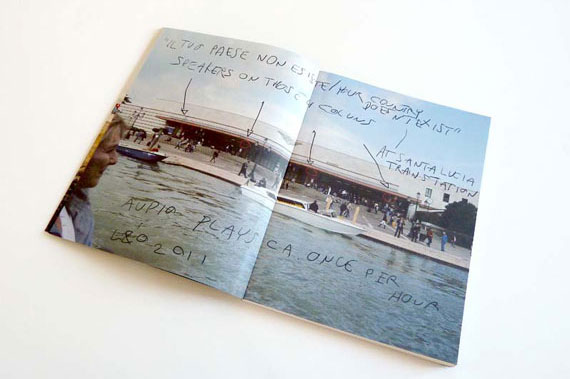 "IL TUO PAESE NON ESISTE/YOUR COUNTRY
DOESN'T EXIST"
SPEAKERS ON THOSE 4 COLUMNS
AT SANTA LUCIA
TRANSTATION
AUDIO PLAYS CA. ONCE PER
HOUR
L&O 2011